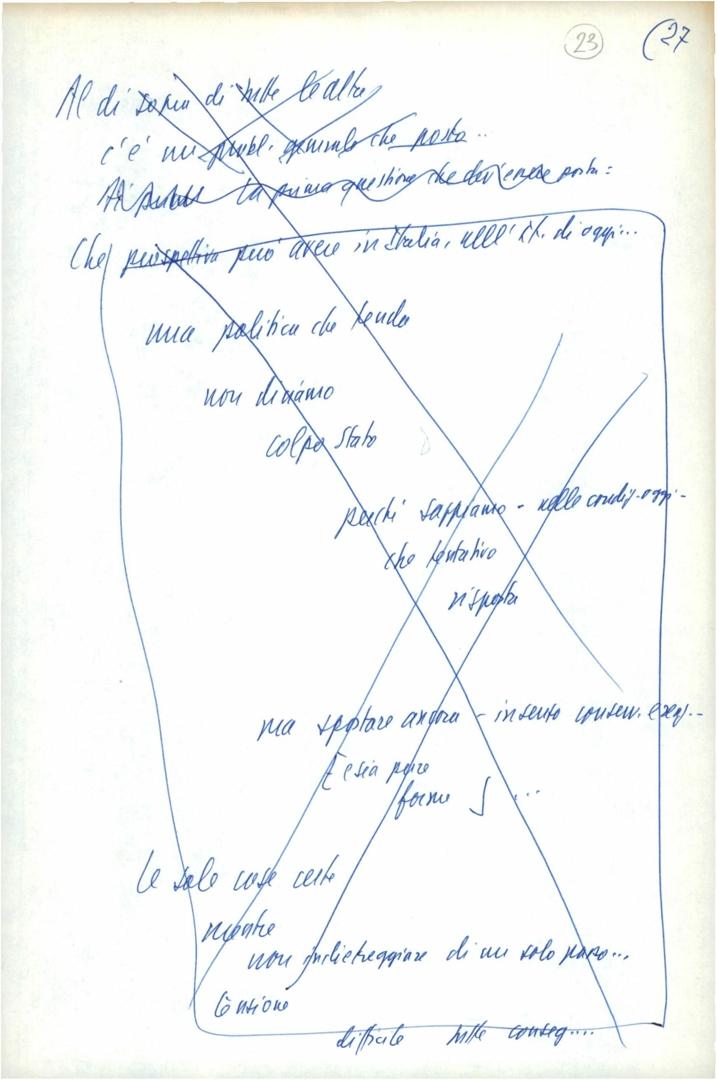 23 (27
Al di sopra di tutte le altre
c'è un probl. generale che posto..
la prima questione che dev'essere posta:
Che prospettiva può avere in Italia, nell' di oggi...
una politica che tenda
non diciamo
colpo Stato
perché sappiamo - nelle condiz. oggi -
che tentativo
risposta
ma spostare ancora - in senso conserv. e
E sia pure
forme [ ...
Le sole cose certe
niente
non indietreggiare di un solo passo...
tensione
difficile tutte conseg....